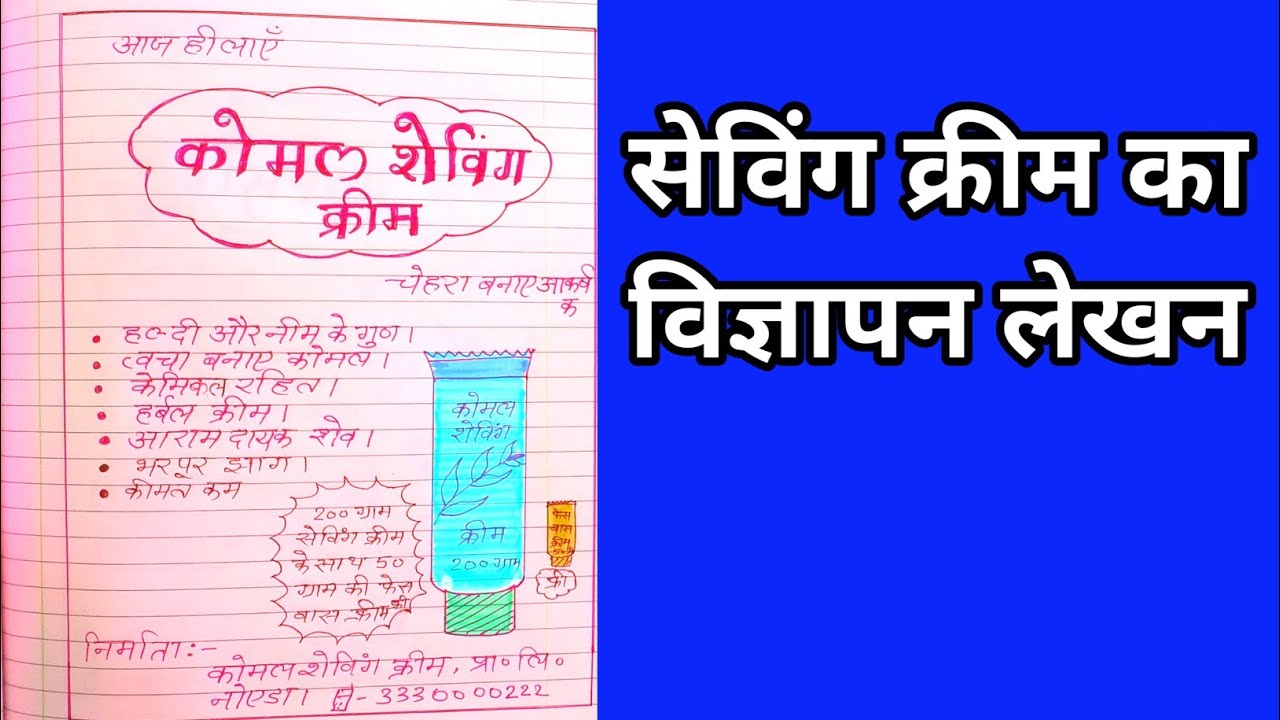 आज ही लाएँ
कोमल शेविंग
क्रीम
चेहरा बनाए आकर्ष
क
• हल्दी और नीम के गुण।
• त्वचा बनाए कोमल।
• केमिकल रहित।
• हर्बल क्रीम।
• आराम दायक शेव।
• भरपूर झाग।
• कीमत कम
200 ग्राम
सेविंग क्रीम
के साथ 50
ग्राम की फेस
वास क्रीम फ्री
कोमल
शेविंग
क्रीम
200 ग्राम
फेस
वास
क्रीम
फ्री
निर्माता:-
कोमल शेविंग क्रीम, प्रा० लि०
नोएडा। - 3330000222
सेविंग क्रीम का
विज्ञापन लेखन